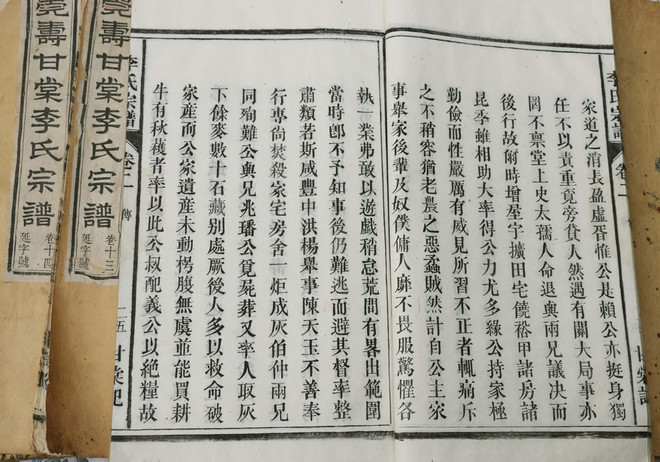 李氏宗譜 卷二 甘棠記
家道之消長盈虛胥惟公是賴公亦挺身獨
任不以責重竟旁貸人然遇有關大局事亦
罔不禀堂上史太孺人命退與兩兄議決而
後行故時增屋宇擴田宅饒裕甲諸房諸
昆季雖相助大率得公力尤多緣公持家極
勤儉而性嚴厲有威見所習不正者輒痛斥
之不稍容猶老農之惡蟊賊然計自公主家
事舉家後輩及奴僕傭人靡不畏服驚懼各
執一業弗敢以遊戲稍怠荒間有畧出範圍
當時卽不予知事後仍難逃而避其督率整
肅類若斯咸豐中洪楊舉事陳天玉不善奉
行專尙焚殺家宅房舍一炬成灰伯仲兩兄
同殉難公與兄兆璠公覓屍葬又率人取灰
下餘麥數十石藏別處厥後人多以救命破
家產而公家遺產未動枵腹無虞並能買耕
牛有秋穫者率以此公叔配義公以絶糧故
李氏宗譜 卷二 傳 二五 甘棠記
壽甘棠李氏宗譜
卷十三
延字號
壽甘棠李氏宗譜
卷十四
延字號